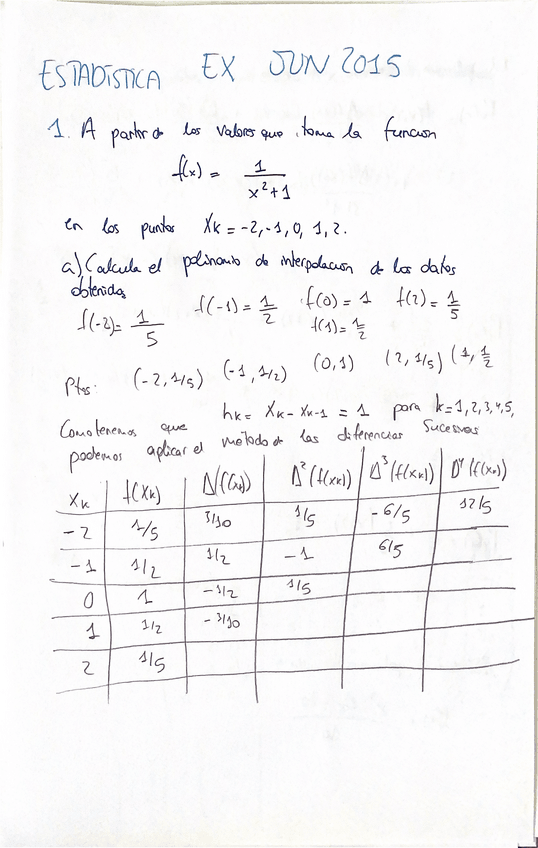 ESTADÍSTICA EX JUN 2015
1. A partir de los valores que toma la función
f(x) = 1 / x²+1
en los puntos Xk = -2, -1, 0, 1, 2.
a) Calcula el polinomio de interpolación de los datos
obtenidos
f(-2) = 1/5 f(-1) = 1/2 f(0) = 1 f(2) = 1/5
f(1) = 1/2
Ptos: (-2, 1/5) (-1, 1/2) (0, 1) (2, 1/5) (1, 1/2
hk = Xk - Xk-1 = 1 para k = 1, 2, 3, 4, 5,
Como tenemos que
podemos aplicar el método de las diferencias sucesivas
Xk f(Xk) Δ(f(Xk)) Δ²(f(Xk)) Δ³(f(Xk)) Δ⁴(f(Xk))
-2 1/5 3/10 1/5 -6/5 12/5
-1 1/2 1/2 -1 6/5
0 1 -1/2 1/5
1 1/2 -3/10
2 1/5